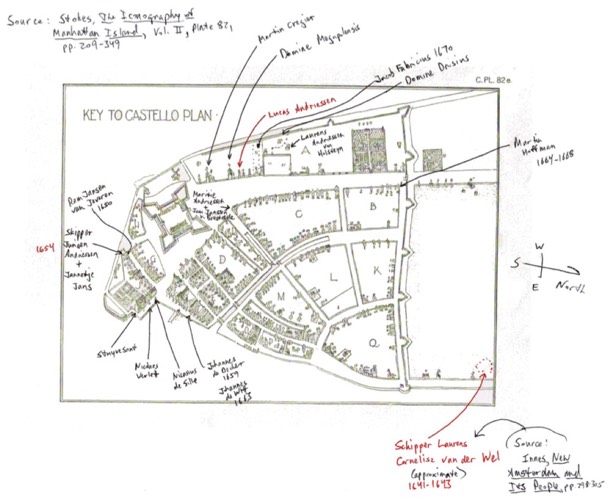 Source: Stokes, The Iconography of
Manhattan Island, Vol. II, Plate 82,
pp. 209-349
Martin Cregier
Domine Megapolensis
Jacob Fabricius 1670
Domine Drisius
Lucas Andriessen
C.PL. 82e
KEY TO CASTELLO PLAN
Laurens
Andriessen
van
A
Martin
Hoffman
1664-1668
Rem Jansen
van Jeveren
1650
Marritie
Andriessen
+
Jan Jansen
B
C
Skipper
Jansen
Andriessen
+
Jannetje
Jans
1654
D
L
K
M
W
S
North
E
O
Stuyvesant
Nicolaes
Verlet
Nicasius
de Sille
Johannes
de Decker
1659
Johannes
de Witt
1663
Schipper Laurens
Cornelisz van der Wel
(approximate)
1641-1643
Source:
Innes, New
Amsterdam and
Its People, pp. 298-305